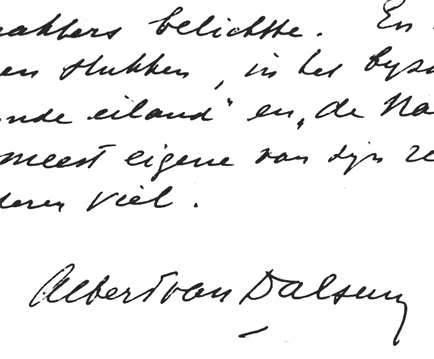 akters belichtte. En
en stukken, in het byzo
nde eiland" en „de Na
meest eigene van zijn re
deren viel.
Albert van Dalsum